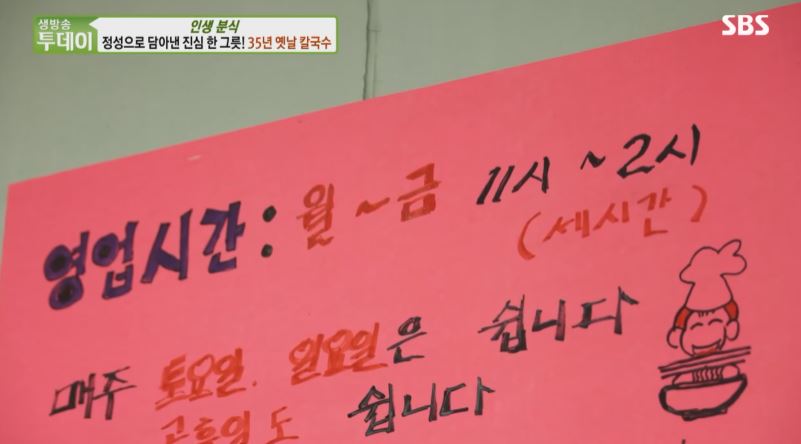 생방송 투데이
인생 분식
정성으로 담아낸 진심 한 그릇! 35년 옛날 칼국수
SBS
영업시간 : 월~금 11시~2시
(세시간)
매주 토요일. 일요일은 쉽니다
공휴일도 쉽니다